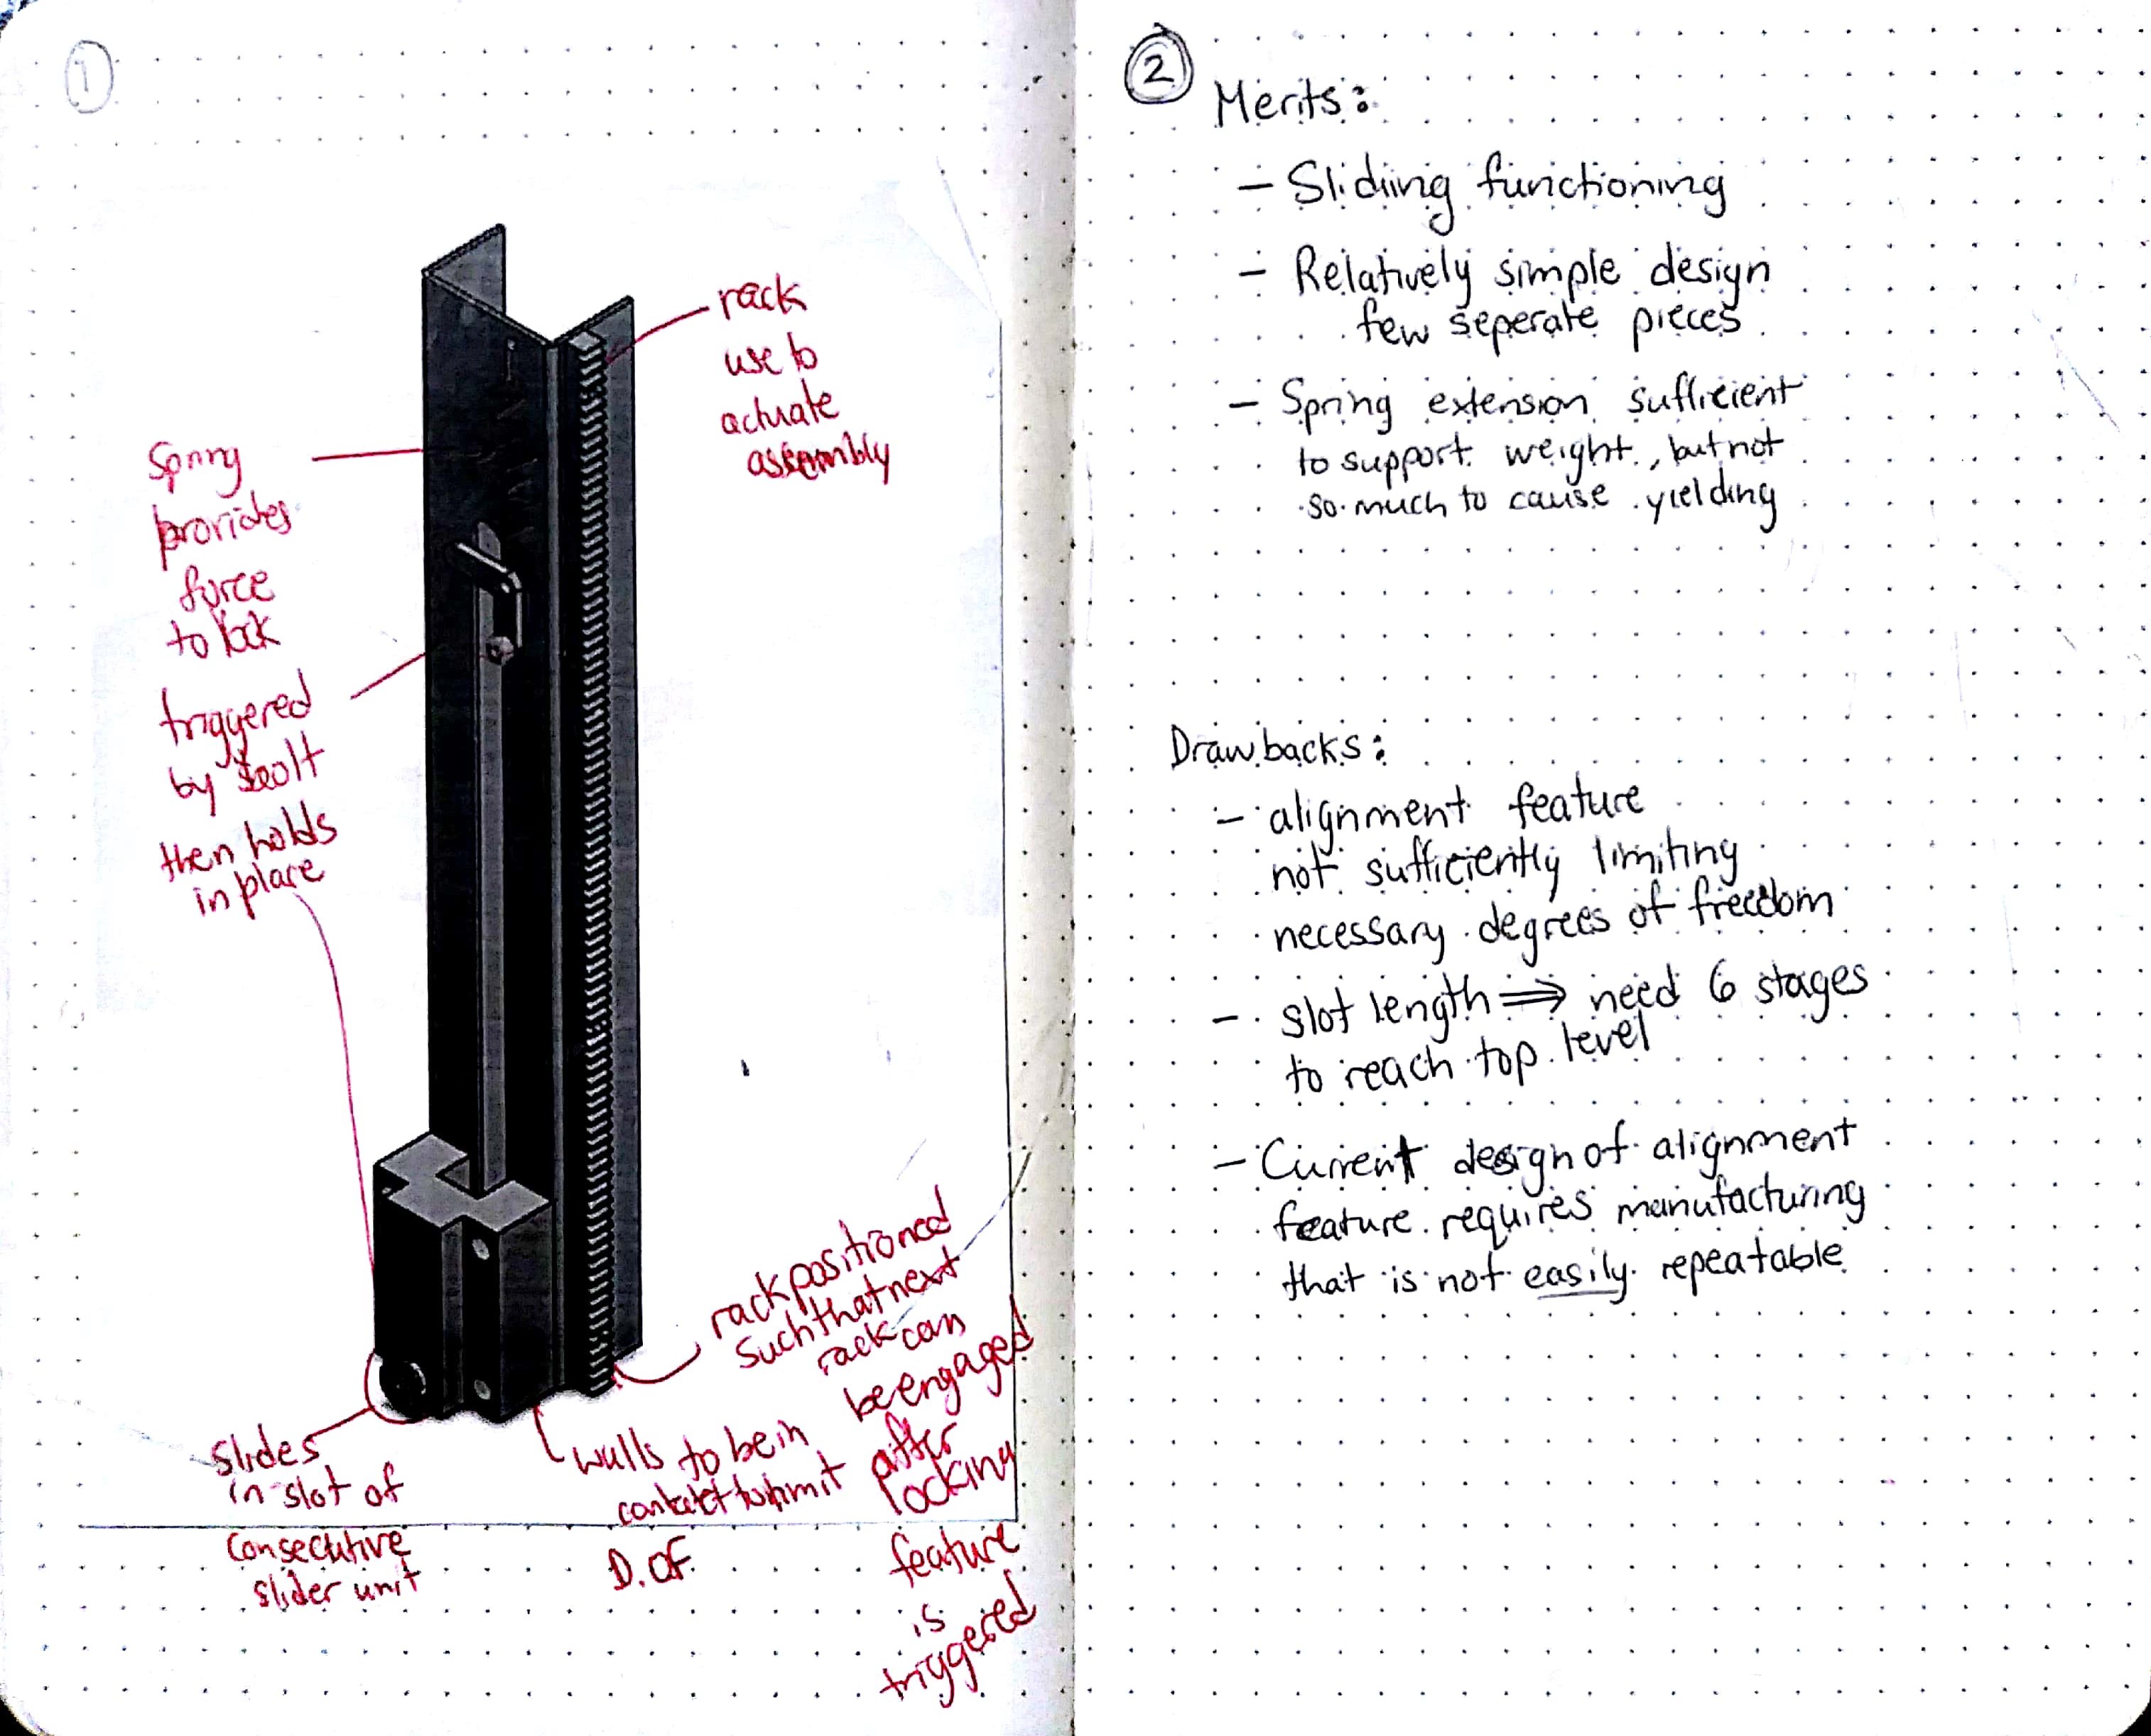 1
rack
use to
actuate
assembly
Spring
provides
force
to lock
triggered
by bolt
then holds
in place
rack positioned
such that next
rack can
be engaged
after
locking
feature
is
triggered
walls to be in
contact to limit
D.OF
Slides
in slot of
consecutive
slider unit
2
Merits:
- Slidiing functioning
- Relatively simple design
few seperate pieces
- Spring extension sufficient
to support weight, but not
so much to cause yielding
Drawbacks:
- alignment feature
not sufficiently limiting
necessary degrees of freedom
- slot length ⇒ need 6 stages
to reach top level
- Current design of alignment
feature requires manufacturing
that is not easily repeatable